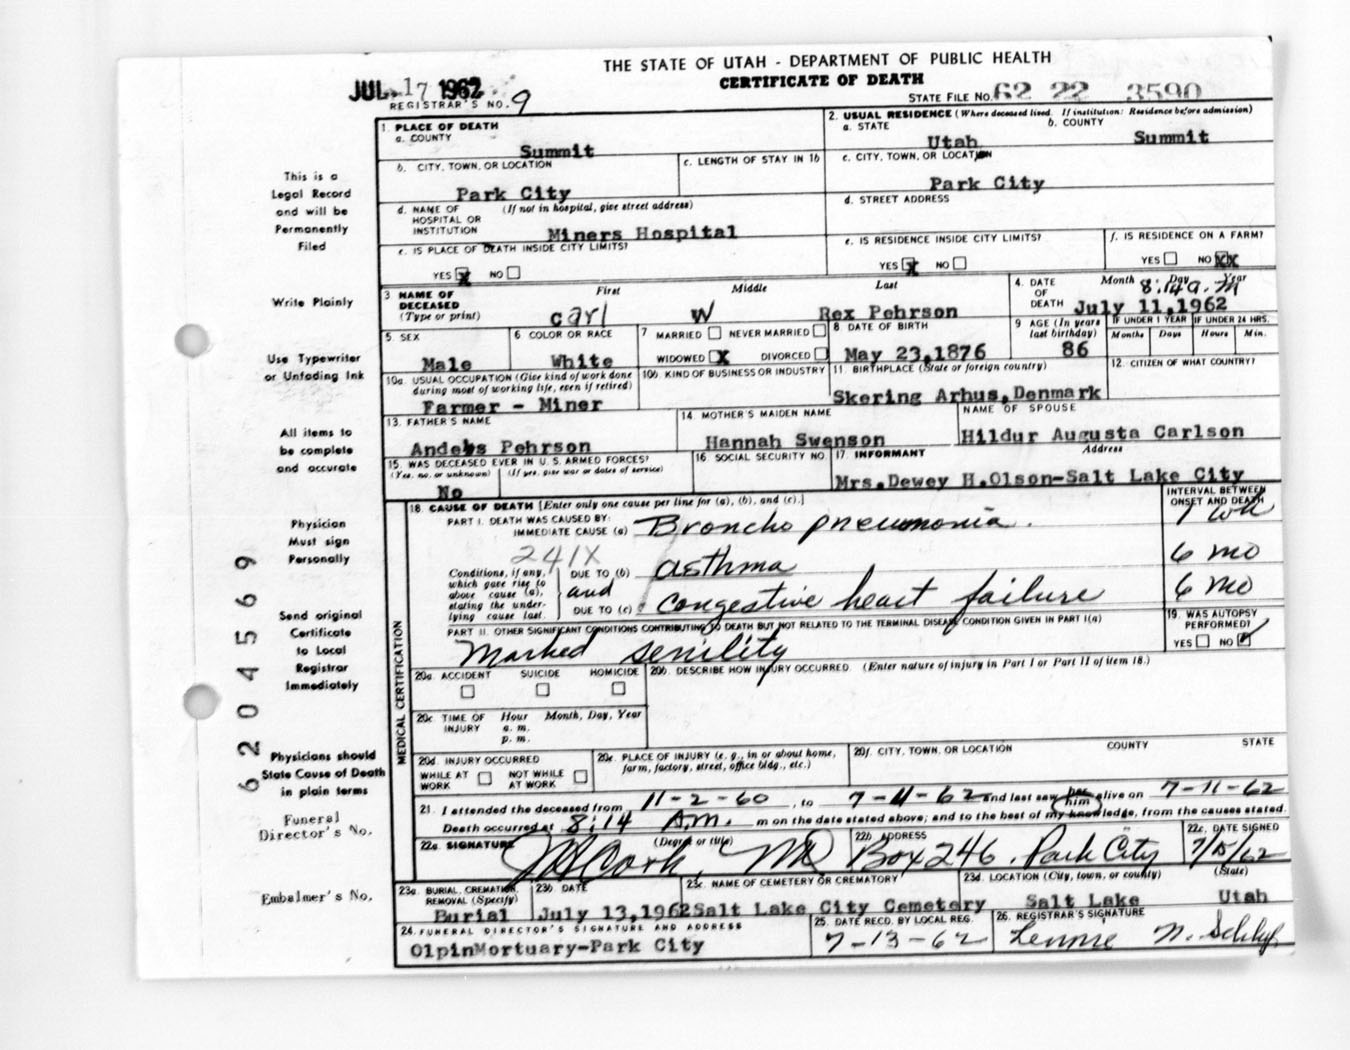 THE STATE OF UTAH - DEPARTMENT OF PUBLIC HEALTH
CERTIFICATE OF DEATH
JUL 17 1962
REGISTRAR'S NO. 9
STATE FILE NO. 62 22 3590
1. PLACE OF DEATH
a. COUNTY
Summit
2. USUAL RESIDENCE (Where deceased lived. If institution: Residence before admission)
a. STATE b. COUNTY
Utah Summit
b. CITY, TOWN, OR LOCATION
Park City
c. LENGTH OF STAY IN 1b
c. CITY, TOWN, OR LOCATION
Park City
d. NAME OF HOSPITAL OR INSTITUTION (If not in hospital, give street address)
Miners Hospital
d. STREET ADDRESS
e. IS PLACE OF DEATH INSIDE CITY LIMITS?
YES X NO
e. IS RESIDENCE INSIDE CITY LIMITS?
YES X NO
f. IS RESIDENCE ON A FARM?
YES NO XX
3 NAME OF DECEASED (Type or print)
First Middle Last
Carl W Rex Pehrson
4. DATE OF DEATH
Month Day Year
8:14 a.m
July 11,1962
5. SEX
Male
6 COLOR OR RACE
White
7 MARRIED NEVER MARRIED
WIDOWED X DIVORCED
8 DATE OF BIRTH
May 23,1876
9 AGE (In years last birthday)
86
IF UNDER 1 YEAR IF UNDER 24 HRS.
Months Days Hours Min.
10a. USUAL OCCUPATION (Give kind of work done during most of working life, even if retired)
Farmer - Miner
10b. KIND OF BUSINESS OR INDUSTRY
11. BIRTHPLACE (State or foreign country)
Skering Arhus, Denmark
12. CITIZEN OF WHAT COUNTRY?
13. FATHER'S NAME
Anders Pehrson
14. MOTHER'S MAIDEN NAME
Hannah Swenson
NAME OF SPOUSE
Hildur Augusta Carlson
15. WAS DECEASED EVER IN U.S. ARMED FORCES?
(Yes, no, or unknown) (If yes, give war or dates of service)
No
16. SOCIAL SECURITY NO.
17. INFORMANT Address
Mrs.Dewey H.Olson-Salt Lake City
18. CAUSE OF DEATH [Enter only one cause per line for (a), (b), and (c).]
INTERVAL BETWEEN ONSET AND DEATH
PART I. DEATH WAS CAUSED BY:
IMMEDIATE CAUSE (a) Broncho pneumonia. 1 wk
241X
Conditions, if any, which gave rise to above cause (a), stating the underlying cause last.
DUE TO (b) asthma 6 mo
and
DUE TO (c) congestive heart failure 6 mo
PART II. OTHER SIGNIFICANT CONDITIONS CONTRIBUTING TO DEATH BUT NOT RELATED TO THE TERMINAL DISEASE CONDITION GIVEN IN PART I(a)
Marked senility
19. WAS AUTOPSY PERFORMED?
YES NO
20a. ACCIDENT SUICIDE HOMICIDE
20b. DESCRIBE HOW INJURY OCCURRED. (Enter nature of injury in Part I or Part II of item 18.)
20c. TIME OF INJURY Hour Month, Day, Year
a. m.
p. m.
20d. INJURY OCCURRED
WHILE AT WORK NOT WHILE AT WORK
20e. PLACE OF INJURY (e. g., in or about home, farm, factory, street, office bldg., etc.)
20f. CITY, TOWN, OR LOCATION COUNTY STATE
21. I attended the deceased from 11-2-60, to 7-11-62 and last saw her him alive on 7-11-62
Death occurred at 8:14 AM. m on the date stated above; and to the best of my knowledge, from the causes stated.
22a. SIGNATURE (Degree or title)
MD
22b. ADDRESS
Box 246. Park City
22c. DATE SIGNED
23a. BURIAL, CREMATION, REMOVAL (Specify)
Burial
23b. DATE
July 13,1962
23c. NAME OF CEMETERY OR CREMATORY
Salt Lake City Cemetery
23d. LOCATION (City, town, or county) (State)
Salt Lake Utah
24. FUNERAL DIRECTOR'S SIGNATURE AND ADDRESS
OlpinMortuary-Park City
25. DATE RECD. BY LOCAL REG.
7-13-62
26. REGISTRAR'S SIGNATURE
MEDICAL CERTIFICATION
This is a
Legal Record
and will be
Permanently
Filed
Write Plainly
Use Typewriter
or Unfading Ink
All items to
be complete
and accurate
Physician
Must sign
Personally
Send original
Certificate
to Local
Registrar
Immediately
Physicians should
State Cause of Death
in plain terms
Funeral
Director's No.
Embalmer's No.
6204569